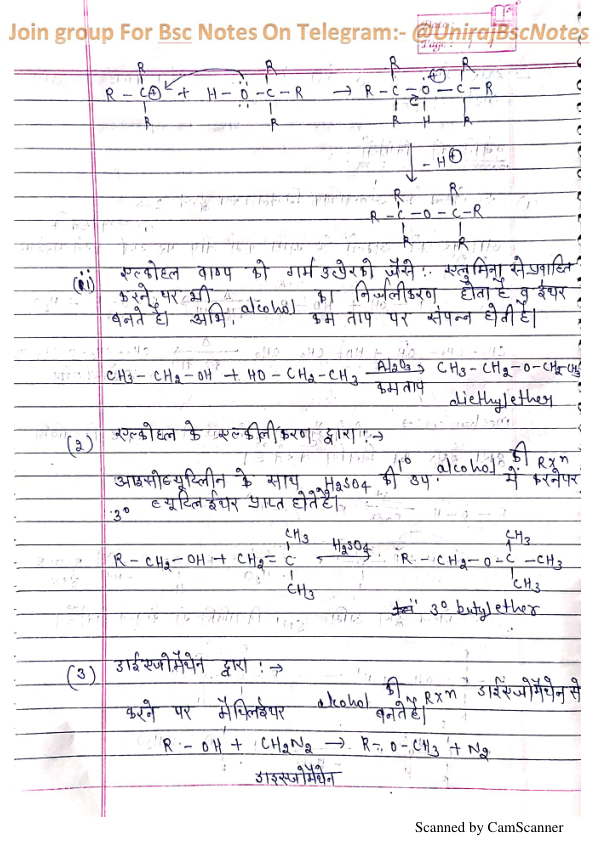 Join group For Bsc Notes On Telegram:- @UnirajBscNotes
R R R R
R - C⊕ + H - Ö - C - R → R - C - O⊕ - C - R
R R R H R
↓ - H⊕
R R
R - C - O - C - R
R R
(ii) एल्कोहल वाष्प को गर्म उत्प्रेरको जैसे :- एलुमिना से प्रवाहित
करने पर भी alcohol का निर्जलीकरण होता है व ईथर
बनते है। अभि. कम ताप पर संपन्न होती है।
CH3 - CH2 - OH + HO - CH2 - CH3 Al2O3 → कम ताप CH3 - CH2 - O - CH2 - CH3
diethylether
(2) एल्कोहल के एल्कीलीकरण द्वारा :→
आइसोब्यूटिलीन के साथ H2SO4 की उप. में 1° alcohol की Rxn करने पर
3° ब्यूटिल ईथर प्राप्त होते है।
CH3 CH3
R - CH2 - OH + CH2 = C H2SO4 → R - CH2 - O - C - CH3
CH3 CH3
3° butylether
(3) डाईएजोमैथेन द्वारा :→
alcohol की Rxn डाईएजोमैथेन से
करने पर मैथिल ईथर बनते है।
R - OH + CH2N2 → R - O - CH3 + N2
डाइएजोमैथेन
Scanned by CamScanner